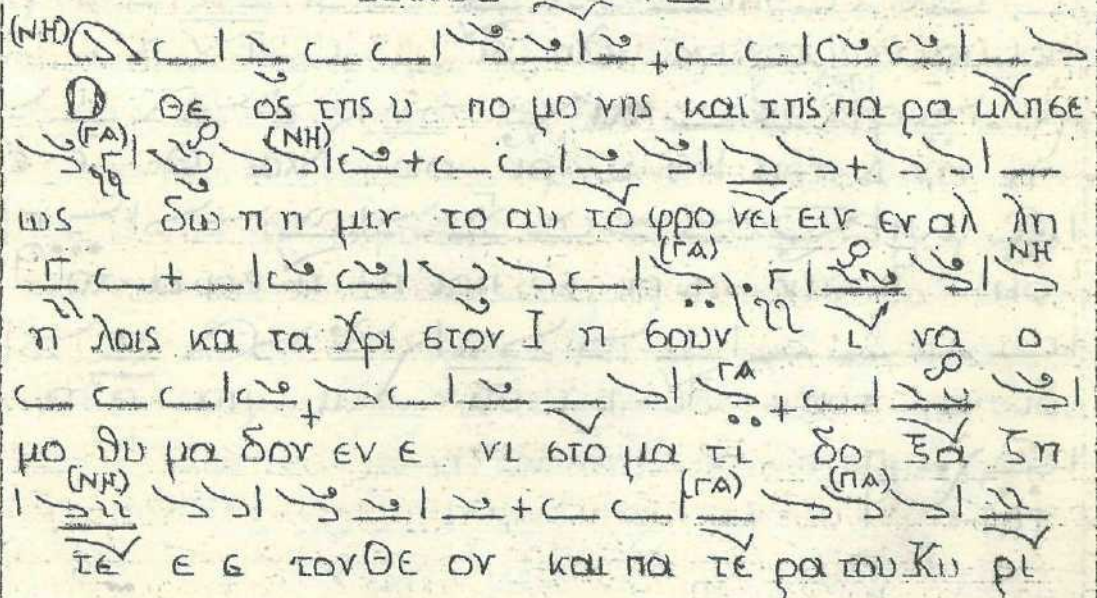 (ΝΗ)
Ο θε ος της υ πο μο νης και της πα ρα κλησε
(ΓΑ) (ΝΗ)
ως δω η η μιν το αυ το φρο νει ειν εν αλ λη
(ΓΑ) ΝΗ
η λοις κα τα Χρι στον Ι η σουν ι να ο
ΓΑ
μο θυ μα δον εν ε νι στο μα τι δο ξα ζη
(ΝΗ) (ΓΑ) (ΠΑ)
τε ε ε τον Θε ον και πα τε ρα του Κυ ρι